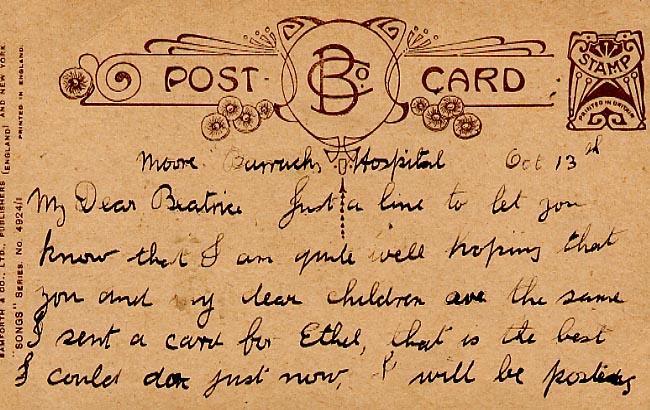 POST CARD
B Co
STAMP
PRINTED IN BRITAIN
BAMFORTH & CO., LTD., PUBLISHERS (ENGLAND) AND NEW YORK
"SONGS" SERIES. No. 4924/1 PRINTED IN ENGLAND.
Moore Barracks Hospital Oct 13th
My Dear Beatrice Just a line to let you
know that I am quite well hoping that
you and my dear children are the same
I sent a card for Ethel, that is the best
I could do just now, I will be posting